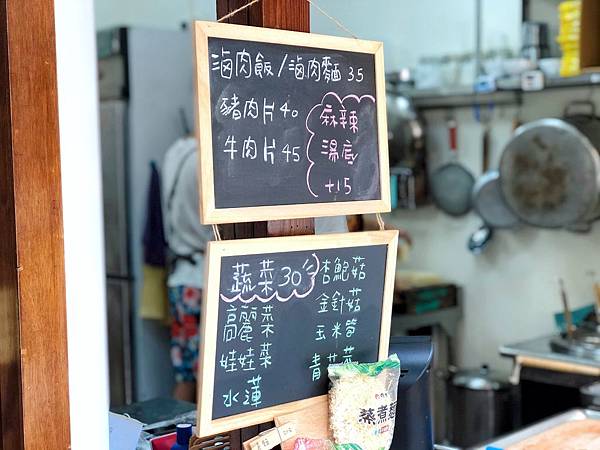 滷肉飯/滷肉麵 35
豬肉片 40
牛肉片 45
麻辣
湯底
+15
蔬菜 30
高麗菜
娃娃菜
水蓮
杏鮑菇
金針菇
玉米筍
蒸煮麵